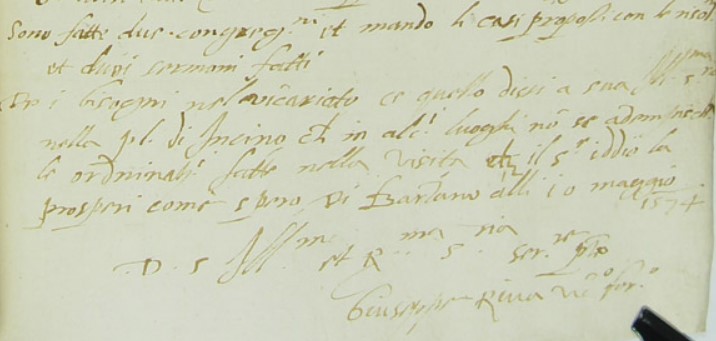 sono fatte due congreg.ni et mando li casi proposti con le risol.
et duoi sermoni fatti
i bisogni nel vicariato ce quello dissi a sua Ill. S.
nella pl. di Incino et in alc.i luoghi nō se
le ordinati. fatte nella visita il S.r iddio la
prosperi come spero Di Barzano alli 10 maggio
1574
D. S. Ill.ma et R.ma S.ria ser.re
Giuseppe Riva vic.o for.o